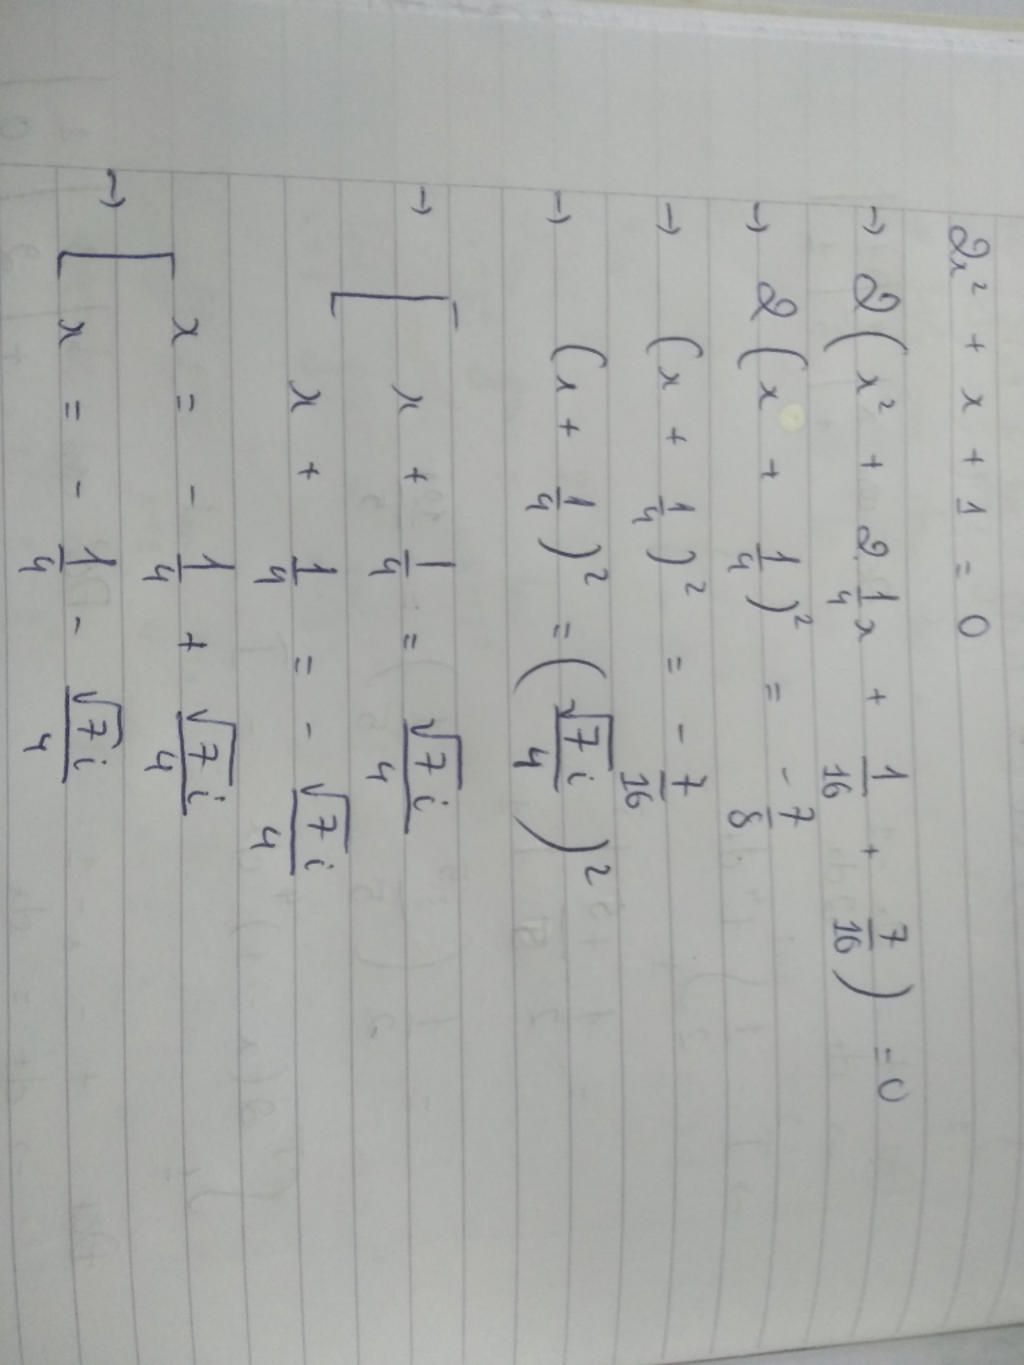 2x² + x + 1 = 0
→ 2(x² + 2 1/4 x + 1/16 + 7/16) = 0
→ 2(x + 1/4)² = -7/8
→ (x + 1/4)² = -7/16
→ (x + 1/4)² = (√7 i/4)²
→ [ x + 1/4 = √7 i/4
x + 1/4 = - √7 i/4
→ [ x = - 1/4 + √7 i/4
x = - 1/4 - √7 i/4